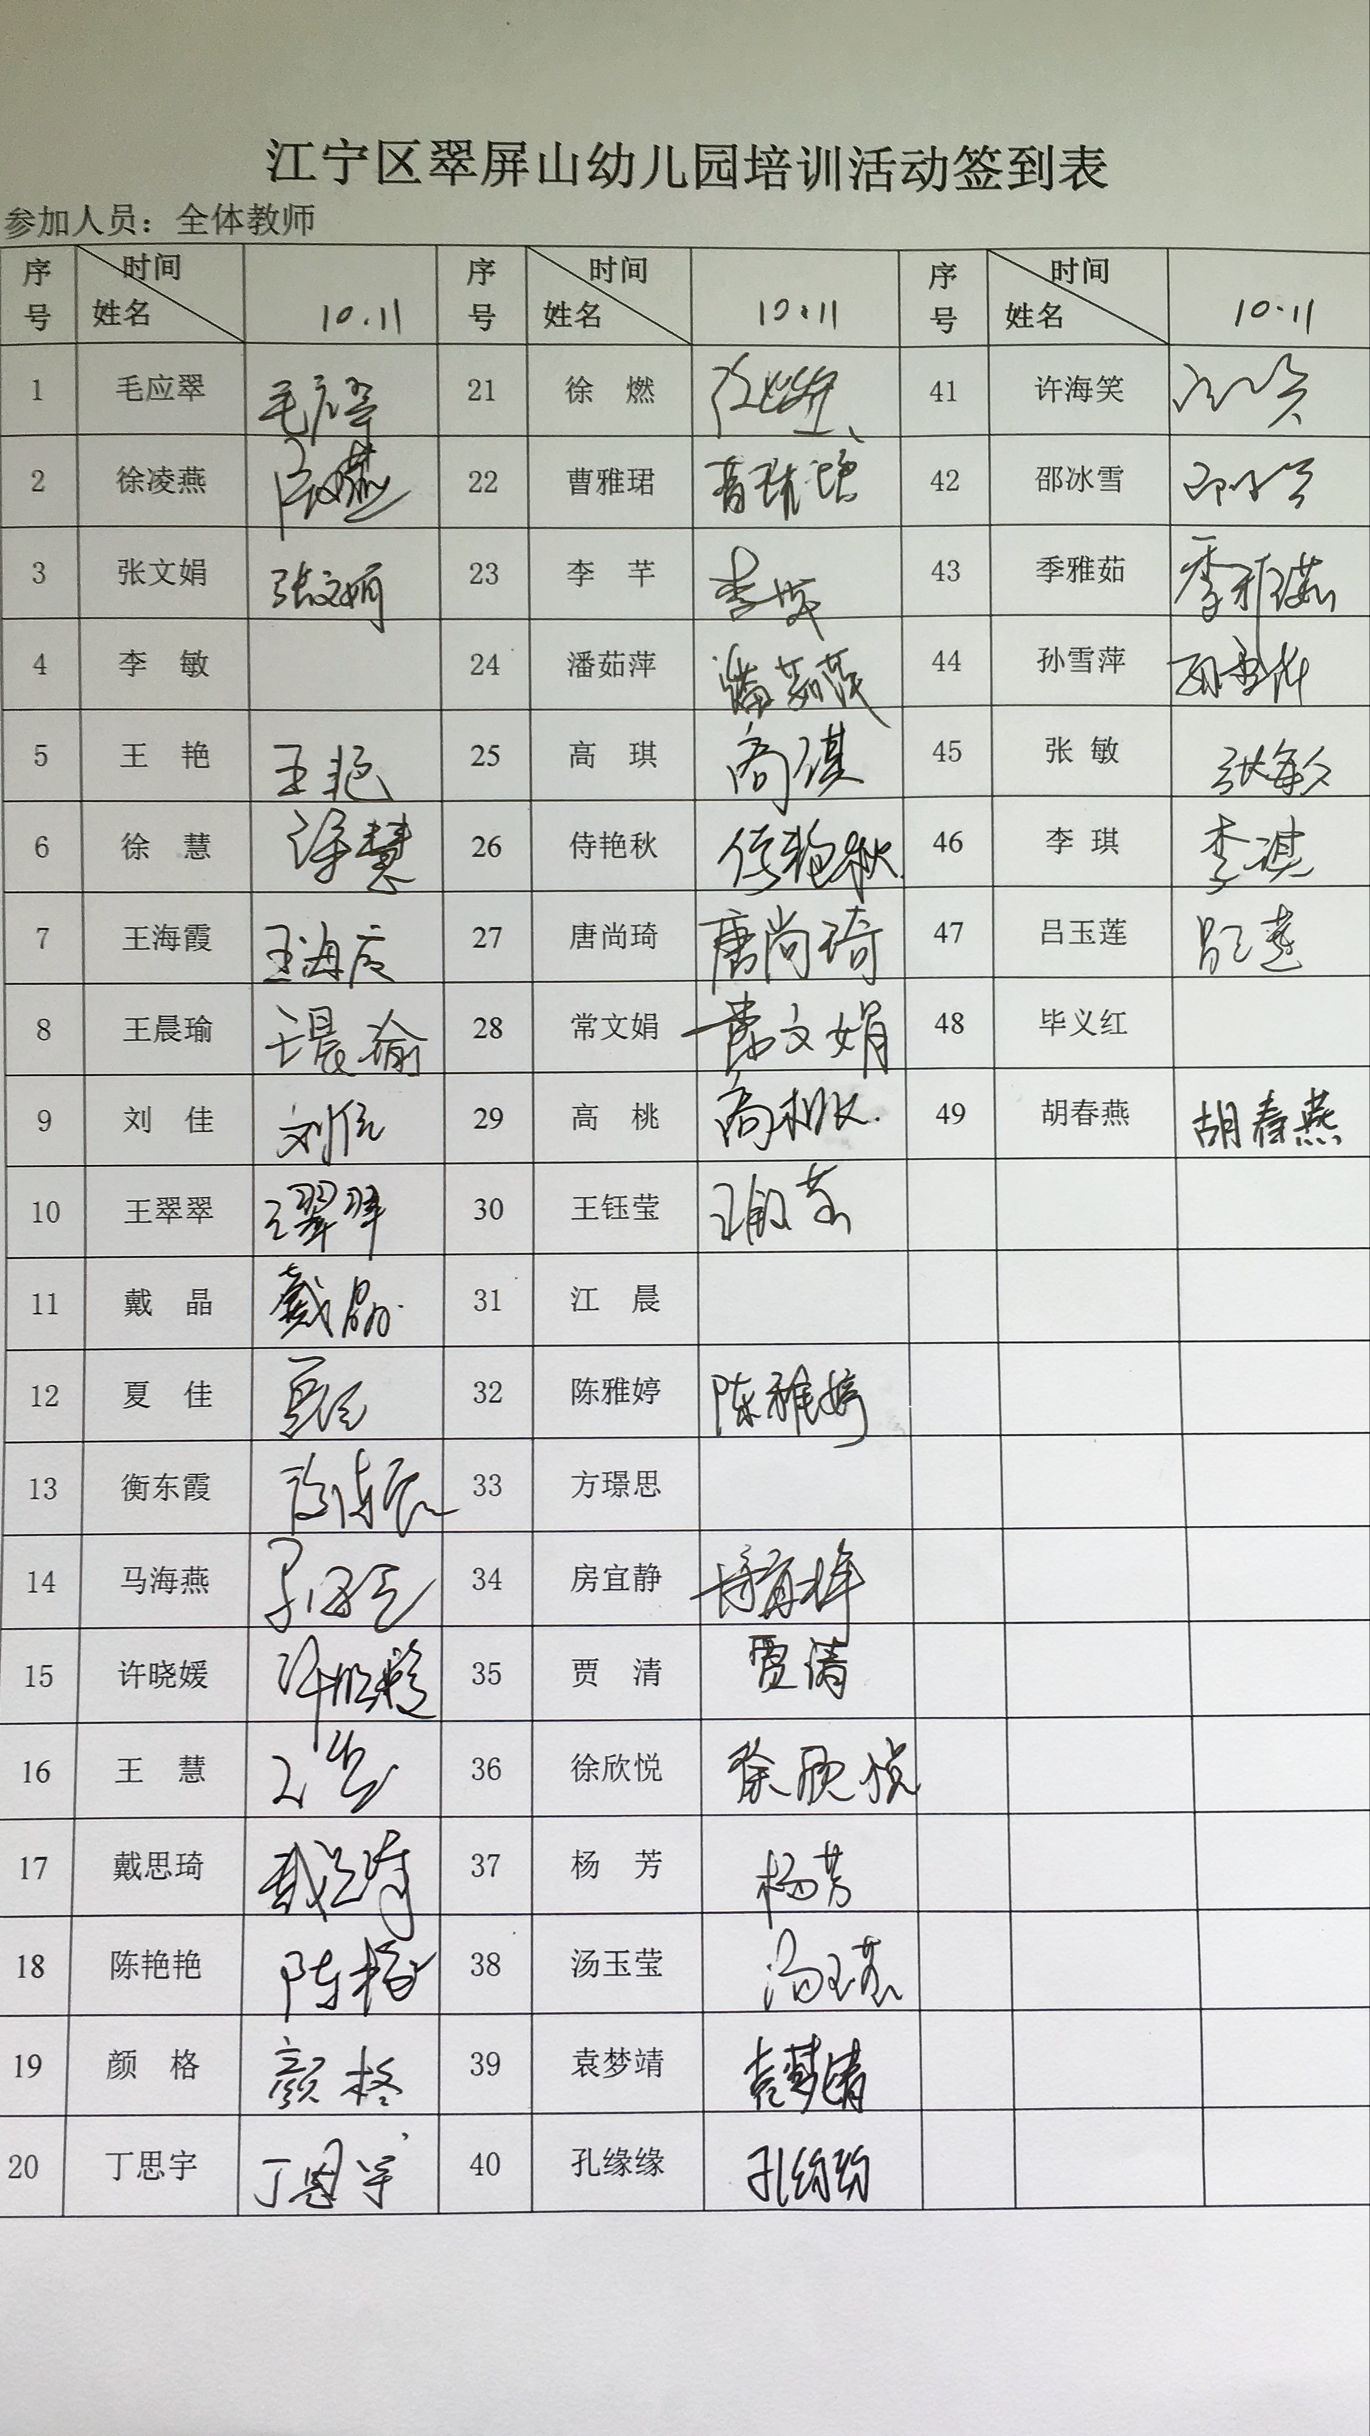 江宁区翠屏山幼儿园培训活动签到表
参加人员：全体教师
序号 时间 姓名 10.11 序号 时间 姓名 10.11 序号 时间 姓名 10.11
1 毛应翠 毛应翠 21 徐 燃 41 许海笑
2 徐凌燕 22 曹雅珺 42 邵冰雪
3 张文娟 张文娟 23 李 芊 李芊 43 季雅茹 季雅茹
4 李 敏 24 潘茹萍 潘茹萍 44 孙雪萍 孙雪萍
5 王 艳 王艳 25 高 琪 高琪 45 张 敏 张敏
6 徐 慧 徐慧 26 侍艳秋 侍艳秋 46 李 琪 李琪
7 王海霞 王海霞 27 唐尚琦 唐尚琦 47 吕玉莲 吕玉莲
8 王晨瑜 王晨瑜 28 常文娟 常文娟 48 毕义红
9 刘 佳 刘佳 29 高 桃 高桃 49 胡春燕 胡春燕
10 王翠翠 王翠翠 30 王钰莹 王钰莹
11 戴 晶 戴晶 31 江 晨
12 夏 佳 夏佳 32 陈雅婷 陈雅婷
13 衡东霞 33 方璟思
14 马海燕 34 房宜静
15 许晓媛 许晓媛 35 贾 清 贾清
16 王 慧 36 徐欣悦 徐欣悦
17 戴思琦 戴思琦 37 杨 芳 杨芳
18 陈艳艳 38 汤玉莹 汤玉莹
19 颜 格 颜格 39 袁梦靖 袁梦靖
20 丁思宇 丁思宇 40 孔缘缘 孔缘缘